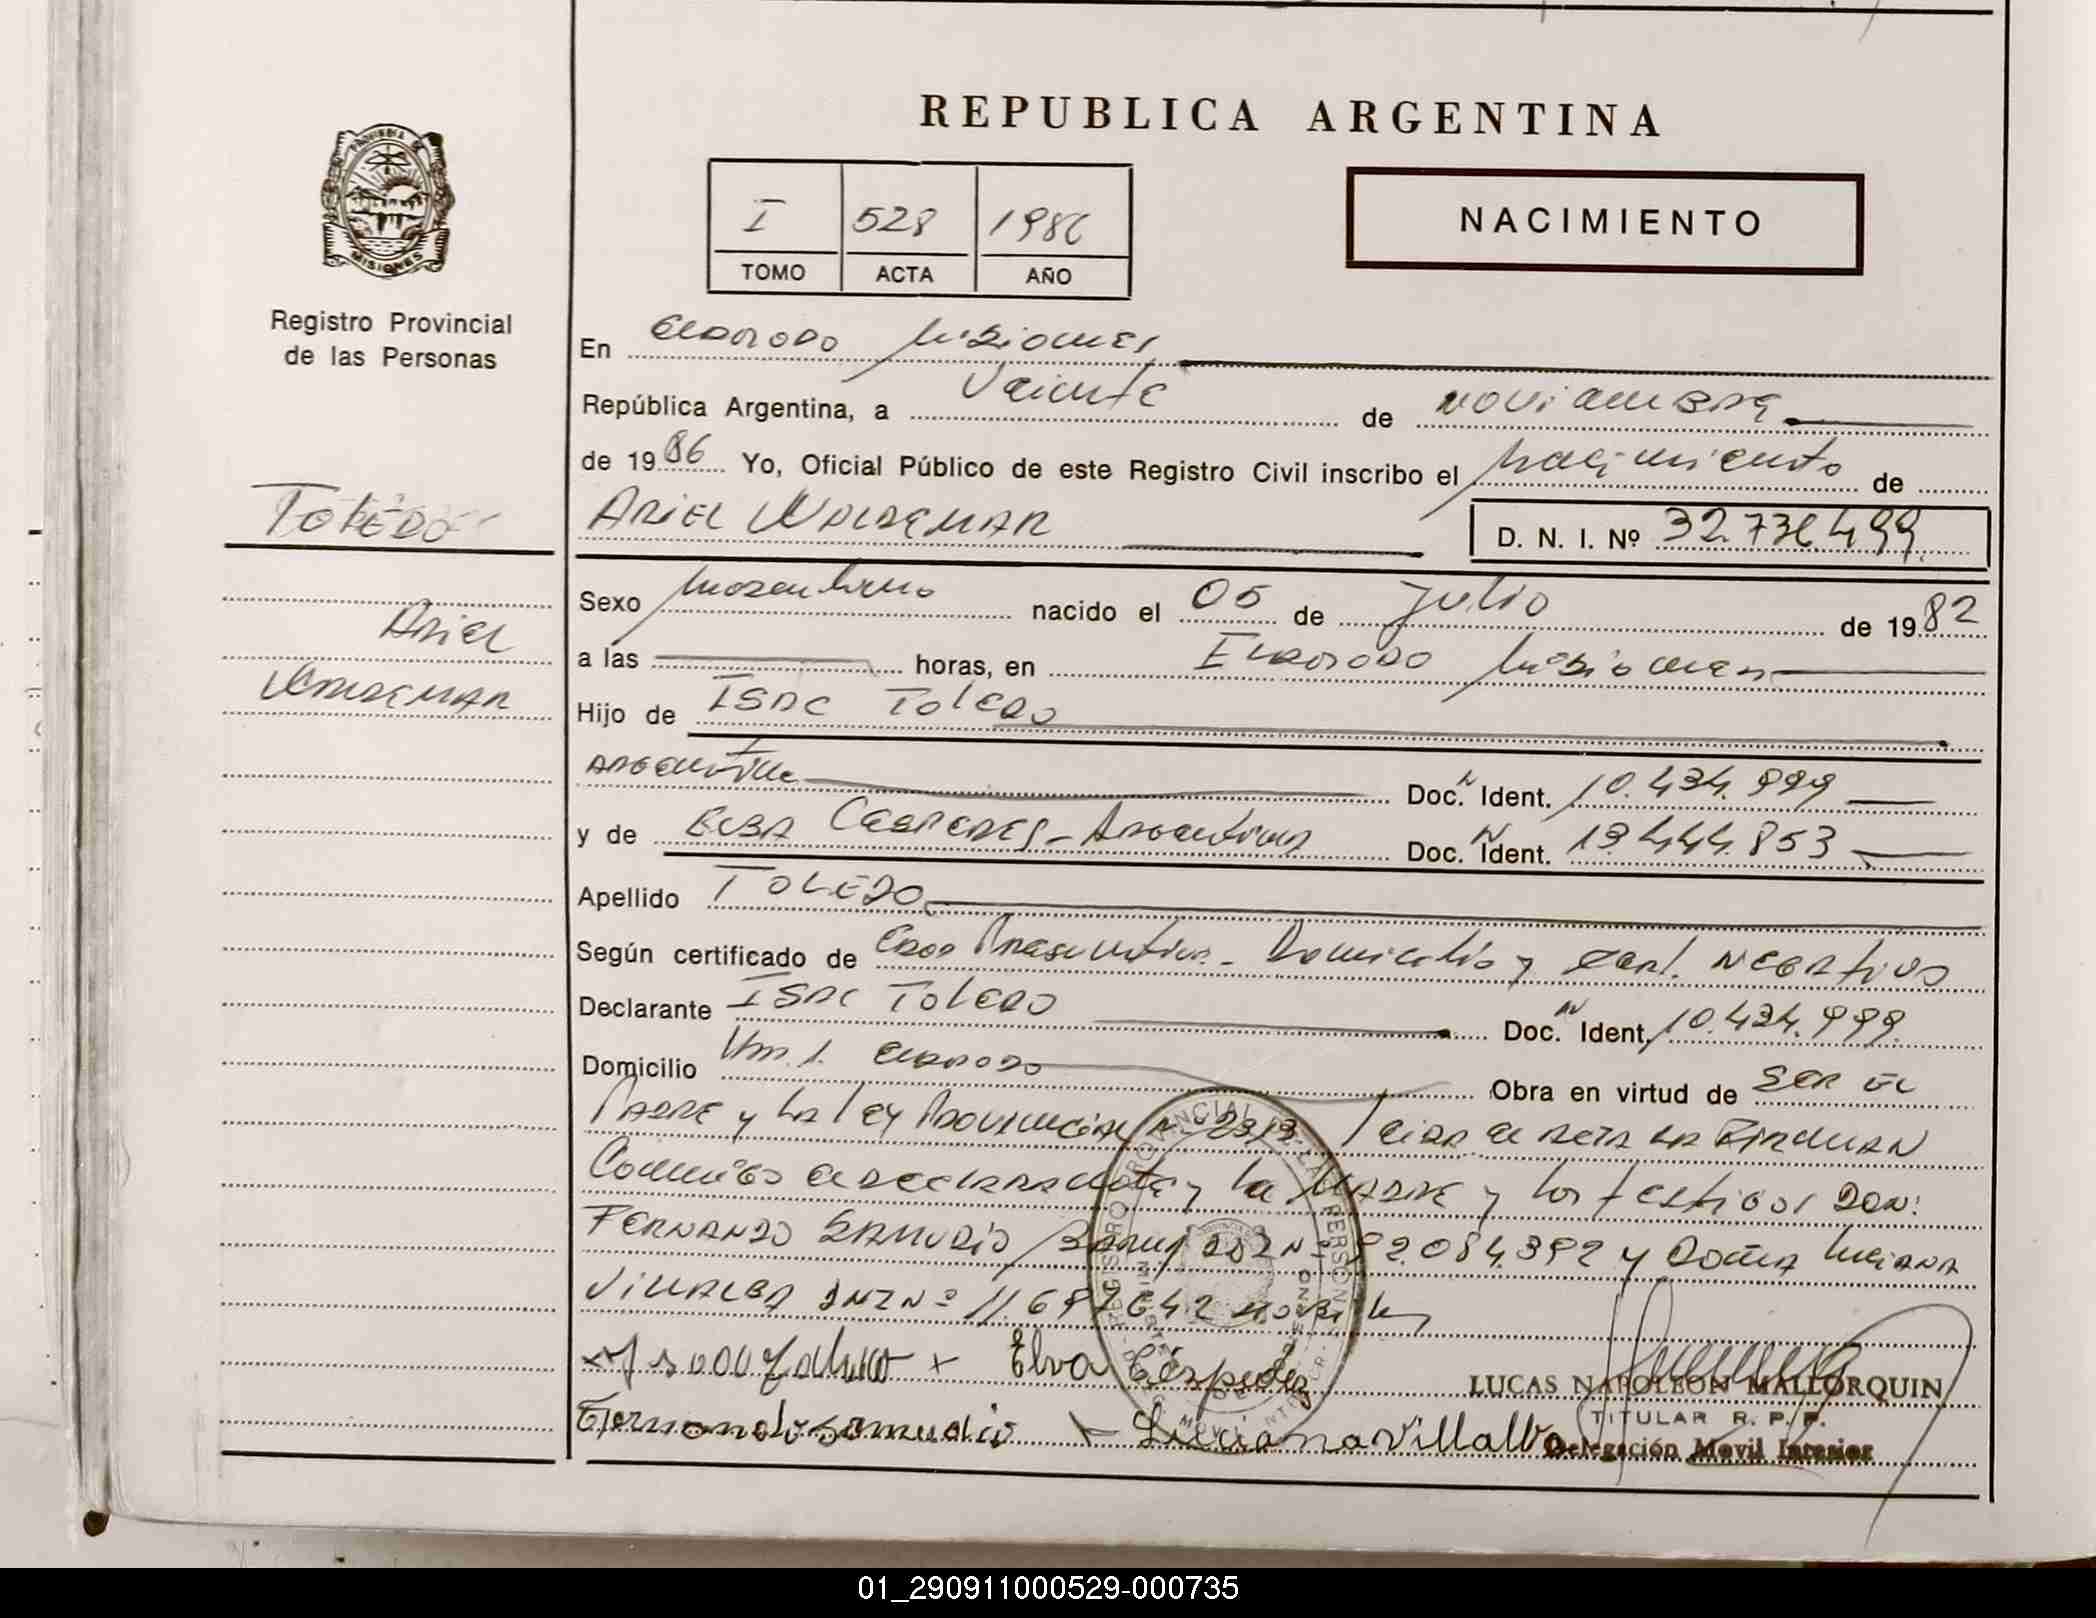 REPUBLICA ARGENTINA
PROVINCIA DE
MISIONES
Registro Provincial
de las Personas
I 528 1986
TOMO ACTA AÑO
NACIMIENTO
En Eldorado Misiones
República Argentina, a Veinte de Noviembre
de 1986 Yo, Oficial Público de este Registro Civil inscribo el Nacimiento de
TOLEDO
ARIEL WALDEMAR D. N. I. Nº 32.736.499.
Ariel
Waldemar
Sexo Masculino nacido el 05 de Julio de 1982
a las horas, en Eldorado Misiones
Hijo de ISAC Toledo
Argentino Doc. N Ident. 10.434.999
y de ELBA CESPEDES - Argentina Doc. N Ident. 13.444.853
Apellido TOLEDO
Según certificado de Edad Presuntiva - Domicilio y Cert. Negativo
Declarante ISAC Toledo Doc. N Ident. 10.434.999.
Domicilio Km. 1. Eldorado Obra en virtud de SER EL
PADRE y LA Ley Provincial Nº Leida el acta la FIRMAN
Conmigo el declarante y la MADRE y los testigos DON:
FERNANDO SAMUDIO DNI Nº 92.084.392 y DOÑA Luciana
VILLALBA DNI Nº 11.687.642
Elva Céspedez
Fernando samudio Luciana Villalba
LUCAS NAPOLEON MALLORQUIN
TITULAR R. P. P.
Delegación Movil Interior
01_290911000529-000735